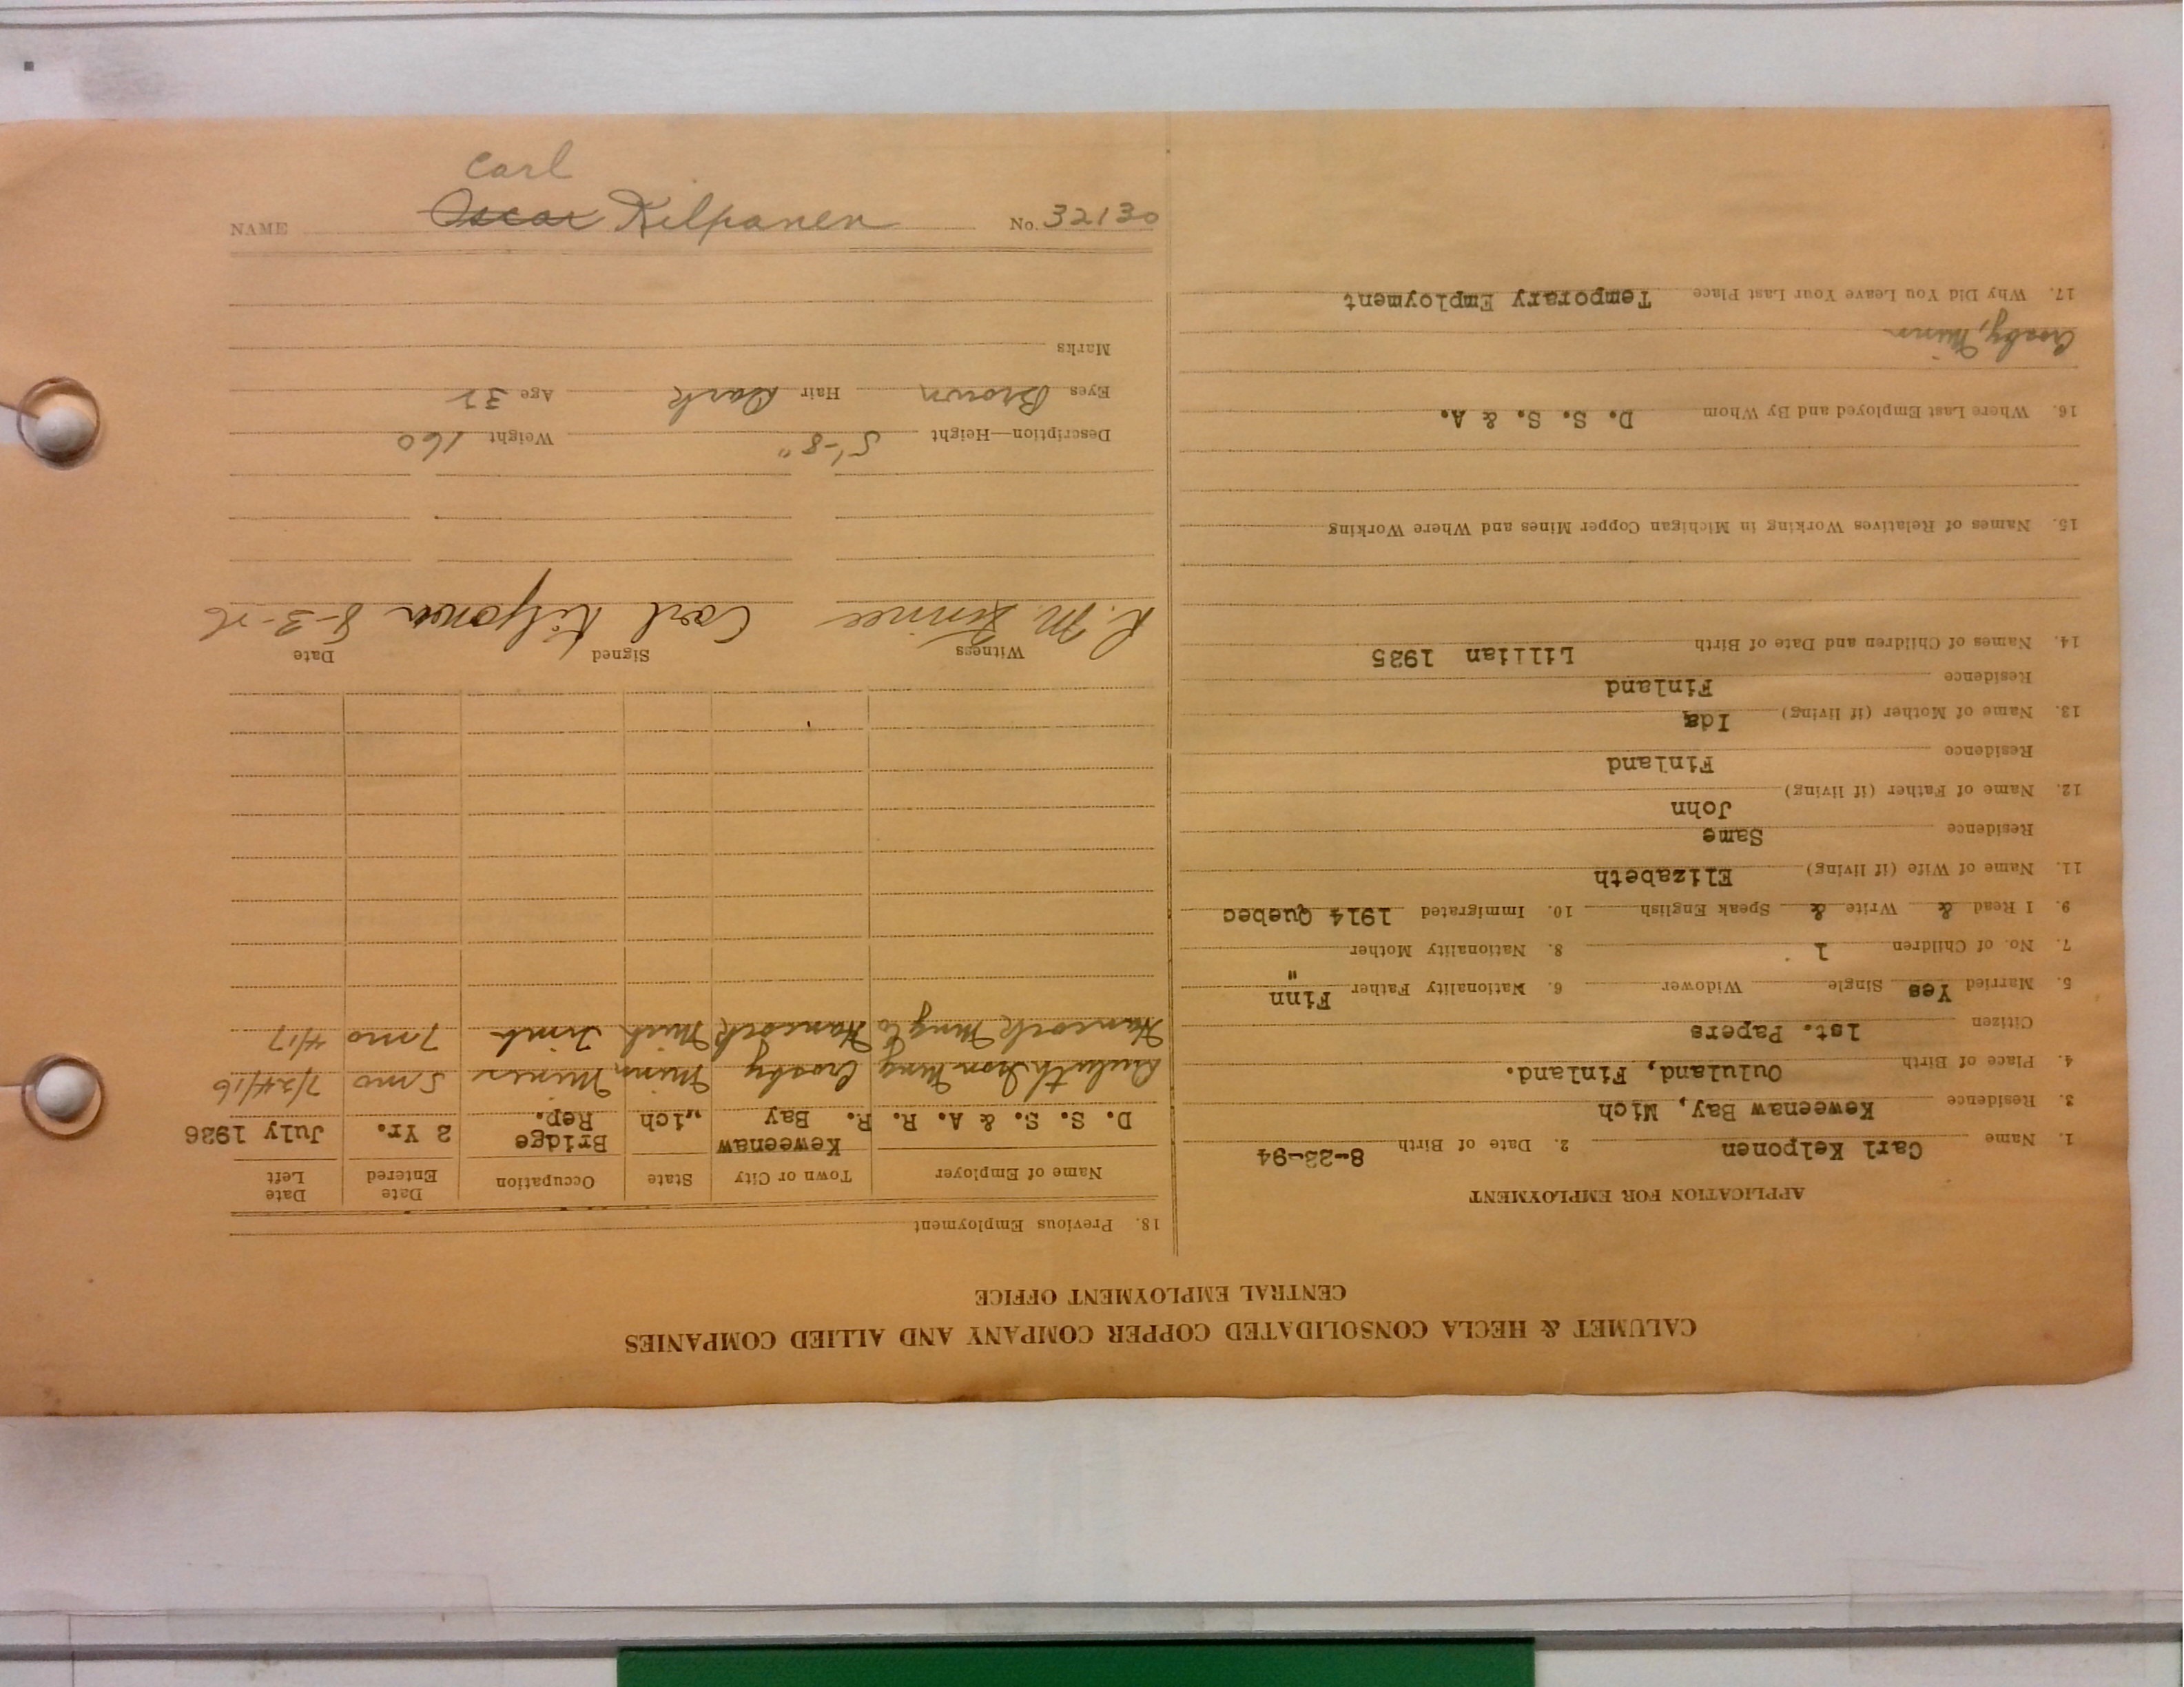 CALUMET & HECLA CONSOLIDATED COPPER COMPANY AND ALLIED COMPANIES
CENTRAL EMPLOYMENT OFFICE
APPLICATION FOR EMPLOYMENT
1. Name Carl Kelponen 2. Date of Birth 8-23-94
3. Residence Keweenaw Bay, Mich
4. Place of Birth Oululand, Finland.
Citizen 1st. Papers
5. Married Yes Single Widower 6. Nationality Father Finn
7. No. of Children 1 8. Nationality Mother "
9. I Read & Write & Speak English 10. Immigrated 1914 Quebec
11. Name of Wife (if living) Elizabeth
Residence Same
12. Name of Father (if living) John
Residence Finland
13. Name of Mother (if living) Ida
Residence Finland
14. Names of Children and Date of Birth Lillian 1925
15. Names of Relatives Working in Michigan Copper Mines and Where Working
16. Where Last Employed and By Whom D. S. S. & A.
Crosby, Minn
17. Why Did You Leave Your Last Place Temporary Employment
18. Previous Employment
Name of Employer Town or City State Occupation Date Entered Date Left
D. S. S. & A. R. R. Keweenaw Bay "ich Bridge Rep. 2 Yr. July 1926
Duluth Iron Mng Crosby Minn Miner 5 mo 7/24/16
Hancock Mng Co Hancock Mich Timb 7 mo 4/17
Witness Signed Date
Carl Kilponen 8-3-26
Description—Height 5'-8" Weight 160
Eyes Brown Hair Dark Age 32
Marks
Carl
NAME Oscar Kilpanen No. 32130